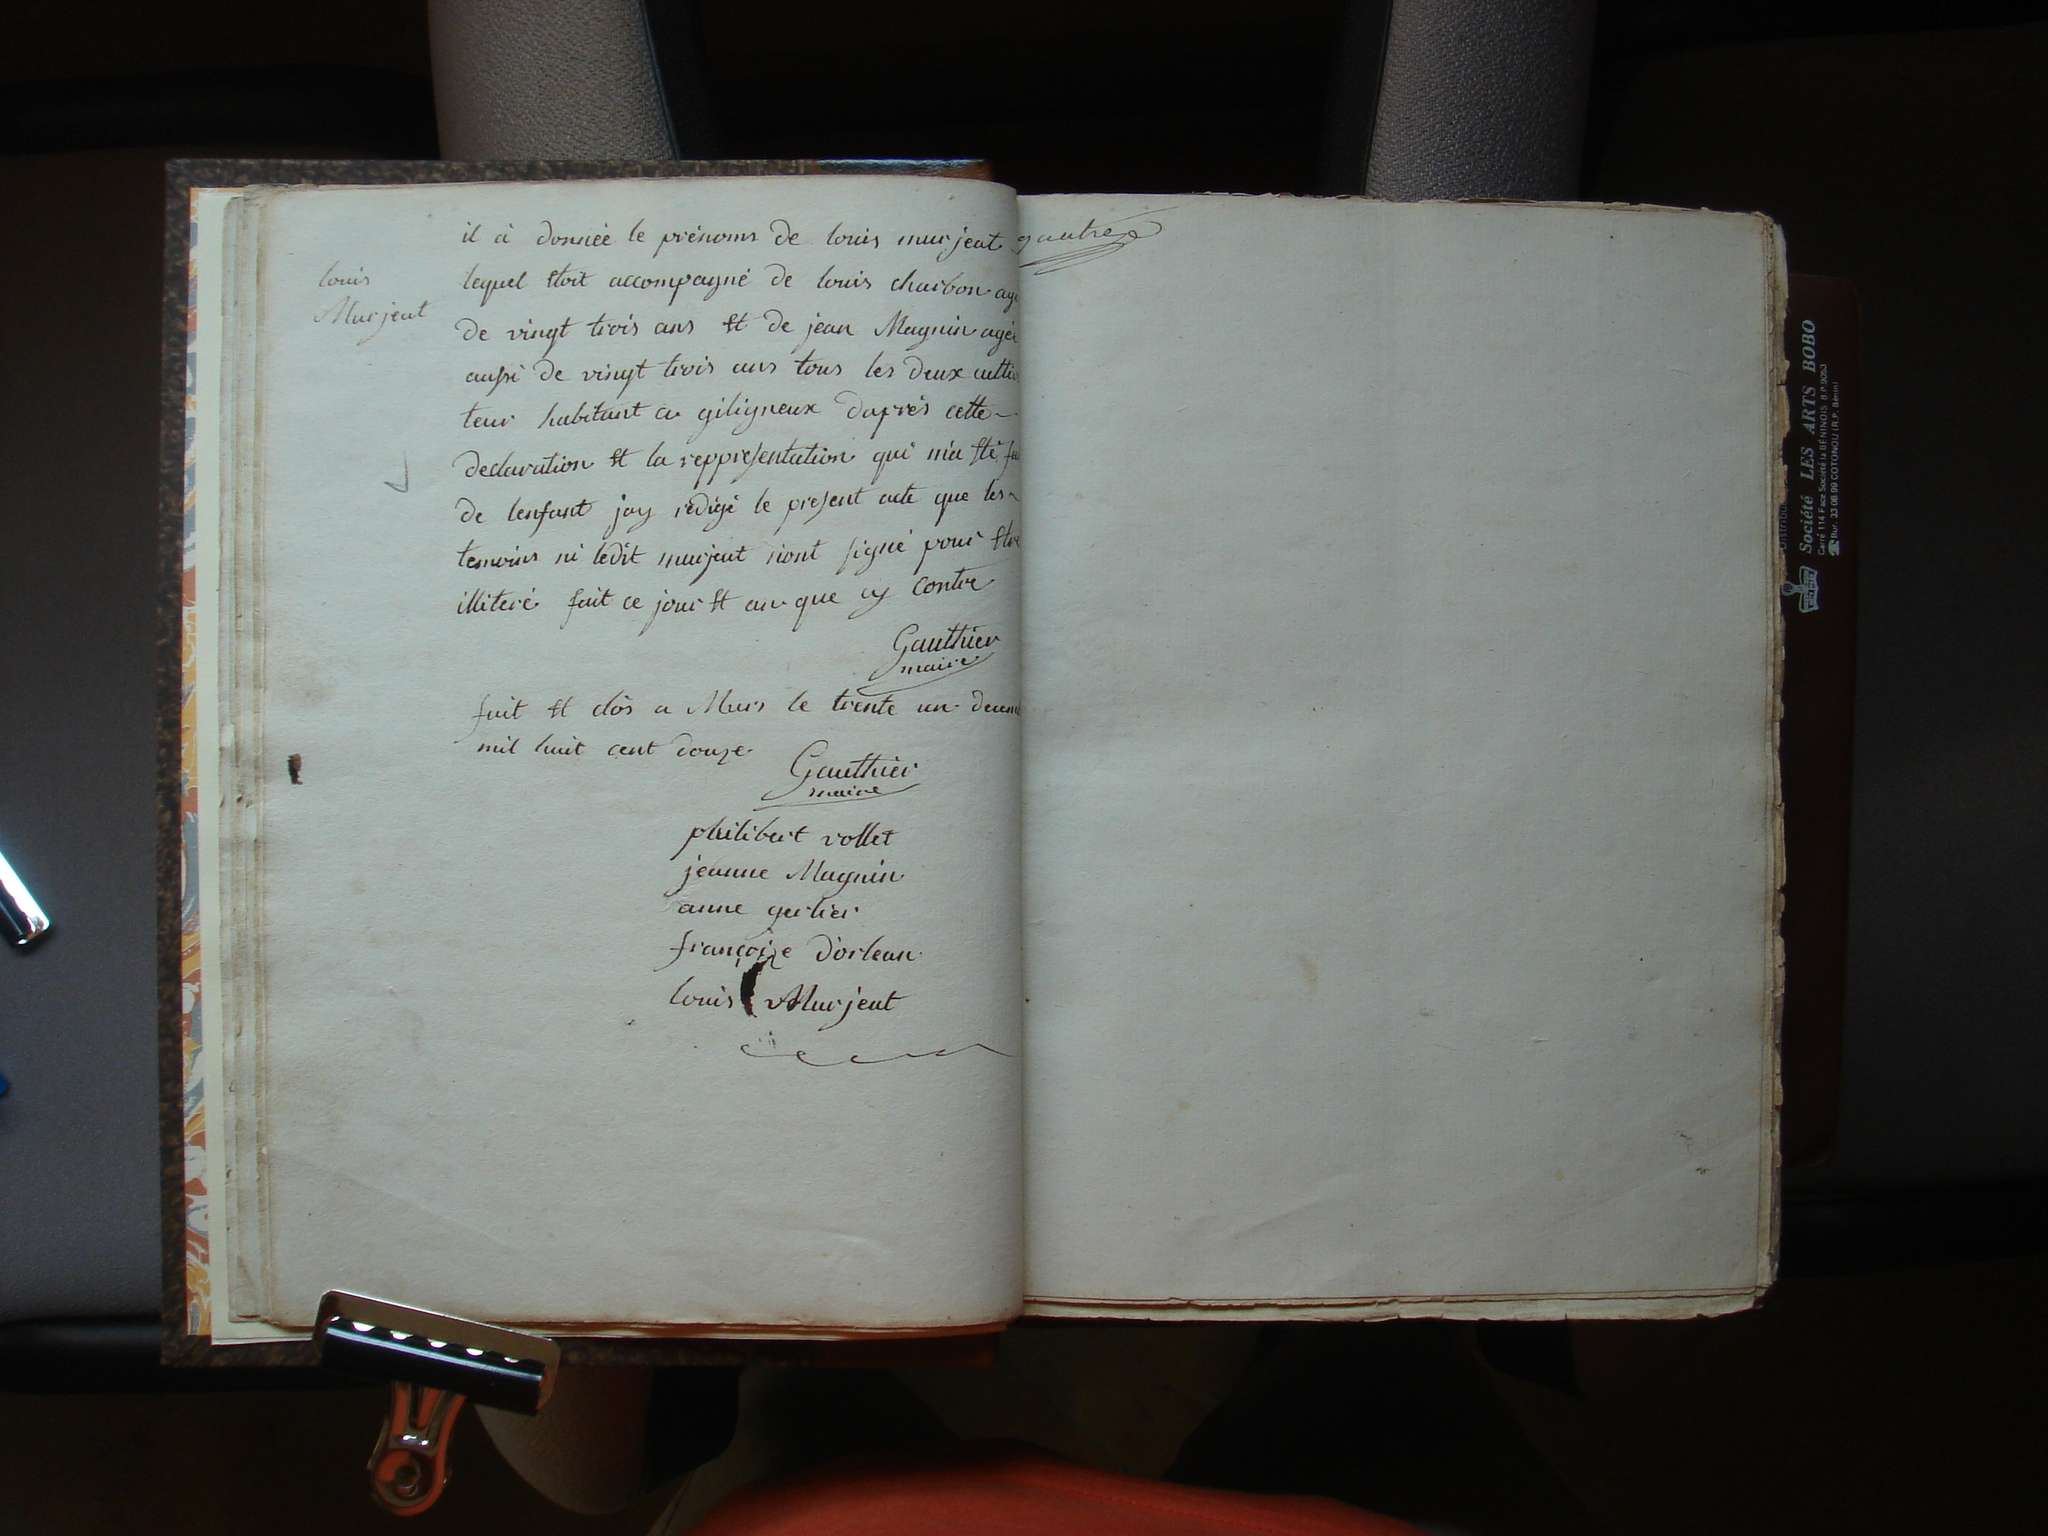 il à donnée le prénoms de louis murjeat
louis
Murjeat
lequel Etoit accompagné de louis charbon agé
de vingt trois ans Et de jean Magnin agée
aussi de vingt trois ans tous les deux cultiv
teur habitant a giligneux daprés cette
declaration Et la reppresentation qui m'a Eté fai
de lenfant jay redigé le present acte que les
temoins ni ledit murjeat n'ont signé pour Etre
illiteré fait ce jour Et an que cy contre
Gauthier
maire
fait Et clôs a Murs le trente un decem
mil huit cent douze
Gauthier
maire
philibert vollet
jeanne Magnin
anne gerlier
françoize d'orlean
louis Murjeat
quatre
Société LES ARTS BOBO
Carré 114 Face Société la BÉNINOIS B.P. 9053
Bur. 33 06 99 COTONOU (R.P. Bénin)